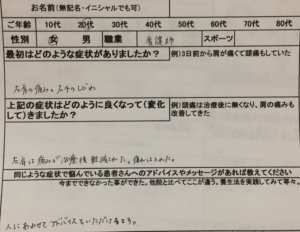 お名前(無記名・イニシャルでも可)
ご年齢 10代 20代 30代 40代 50代 60代 70代 80代
性別 女 男 職業 看護師 スポーツ
最初はどのような症状がありましたか? 例)3日前から肩が痛くて頭痛もしていた
左肩の痛みと左手のしびれ
上記の症状はどのように良くなって(変化して)きましたか?
例)頭痛は治療後に無くなり、肩の痛みも改善してきた
左肩は痛みが治療後軽減された。
同じような症状で悩んでいる患者さんへのアドバイスやメッセージがあれば教えてください
今まてできなかった事ができた。他院と比べてここが違う。養生法を実践してみて等々。
人にあわせてアドバイスをいただけます。